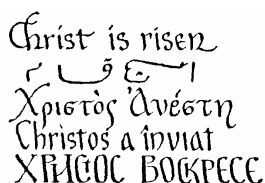 Christ is risen
المسيح قام
Χριστὸς Ἀνέστη
Christos a înviat
ХРИСТОС ВОСКРЕСЕ